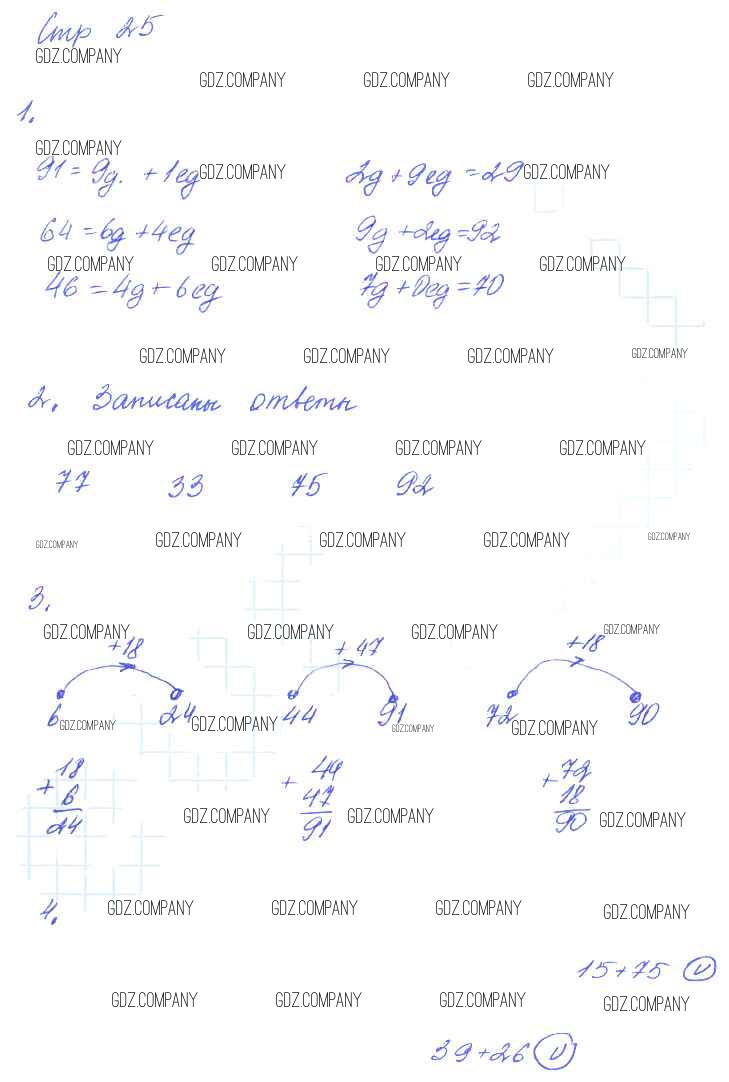 Стр 25
GDZ.COMPANY
GDZ.COMPANY GDZ.COMPANY GDZ.COMPANY
1.
GDZ.COMPANY
91 = 9д. + 1ед GDZ.COMPANY 2д + 9ед = 29 GDZ.COMPANY
64 = 6д + 4ед 9д + 2ед = 92
GDZ.COMPANY GDZ.COMPANY GDZ.COMPANY GDZ.COMPANY
46 = 4д + 6ед 7д + 0ед = 70
GDZ.COMPANY GDZ.COMPANY GDZ.COMPANY GDZ.COMPANY
2. Записаны ответы
GDZ.COMPANY GDZ.COMPANY GDZ.COMPANY GDZ.COMPANY
77 33 75 92
GDZ.COMPANY GDZ.COMPANY GDZ.COMPANY GDZ.COMPANY GDZ.COMPANY
3.
GDZ.COMPANY GDZ.COMPANY GDZ.COMPANY GDZ.COMPANY
+18 + 47 +18
6 GDZ.COMPANY 24 GDZ.COMPANY 44 91 GDZ.COMPANY 72 GDZ.COMPANY 90
18 44 72
+ 6 + 47 + 18
24 GDZ.COMPANY 91 GDZ.COMPANY 90 GDZ.COMPANY
4. GDZ.COMPANY GDZ.COMPANY GDZ.COMPANY GDZ.COMPANY
15+75 V
GDZ.COMPANY GDZ.COMPANY GDZ.COMPANY GDZ.COMPANY
39+26 V